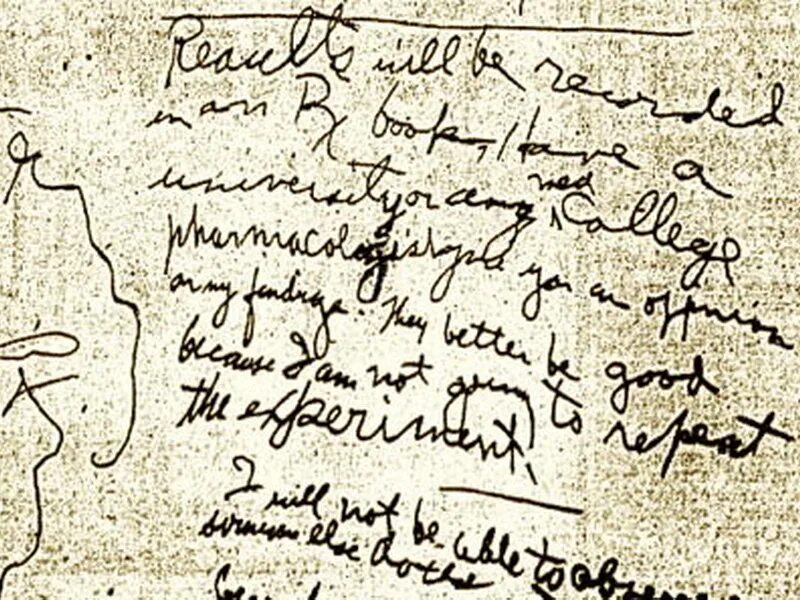 Results will be recorded
in an Rx book, Have a
university or any med College
pharmacologist give you an opinion
on my findings. They better be good
because I am not going to repeat
the experiment.
I will not be able to observe
someone else do the